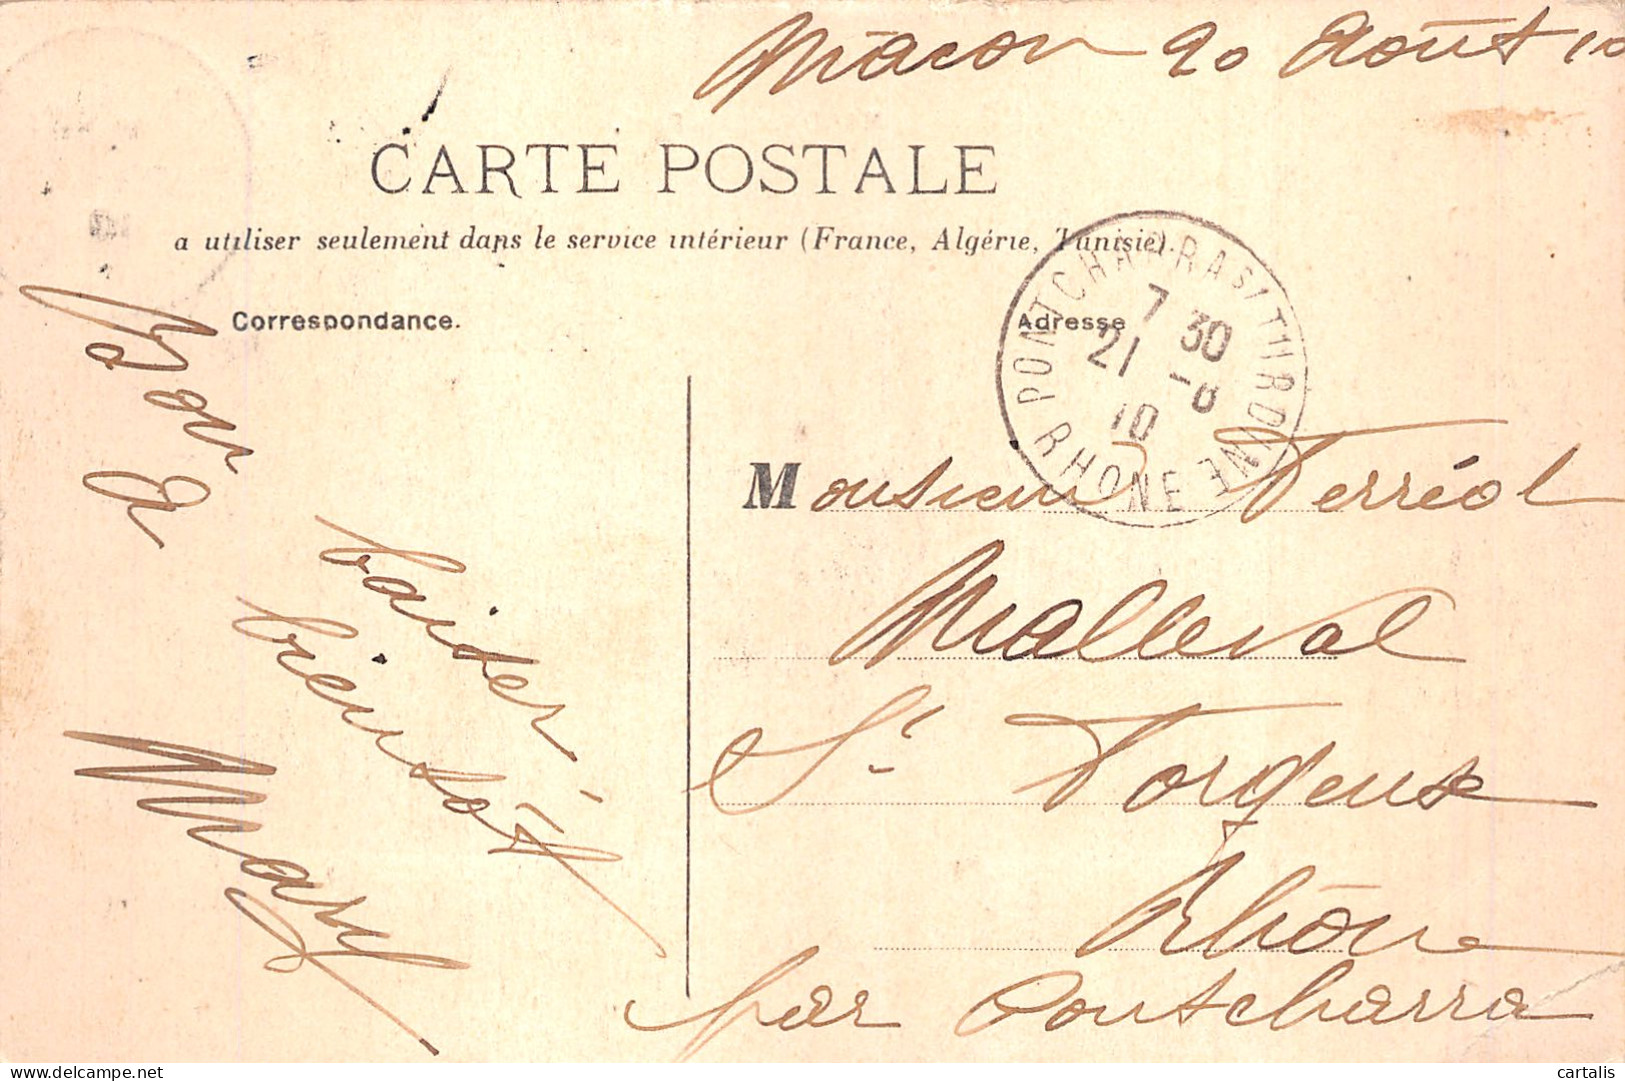 Mâcon 20 Août 10
CARTE POSTALE
a utiliser seulement dans le service intérieur (France, Algérie, Tunisie).
Correspondance.
Adresse
PONTCHARRA S/ TURDINE
RHONE
7 30
21 -8
10
Bon
baiser
A
bientôt
Mary
Monsieur Ferréol
Malleval
St Forgeux
Rhône
par Pontcharra
cartalis